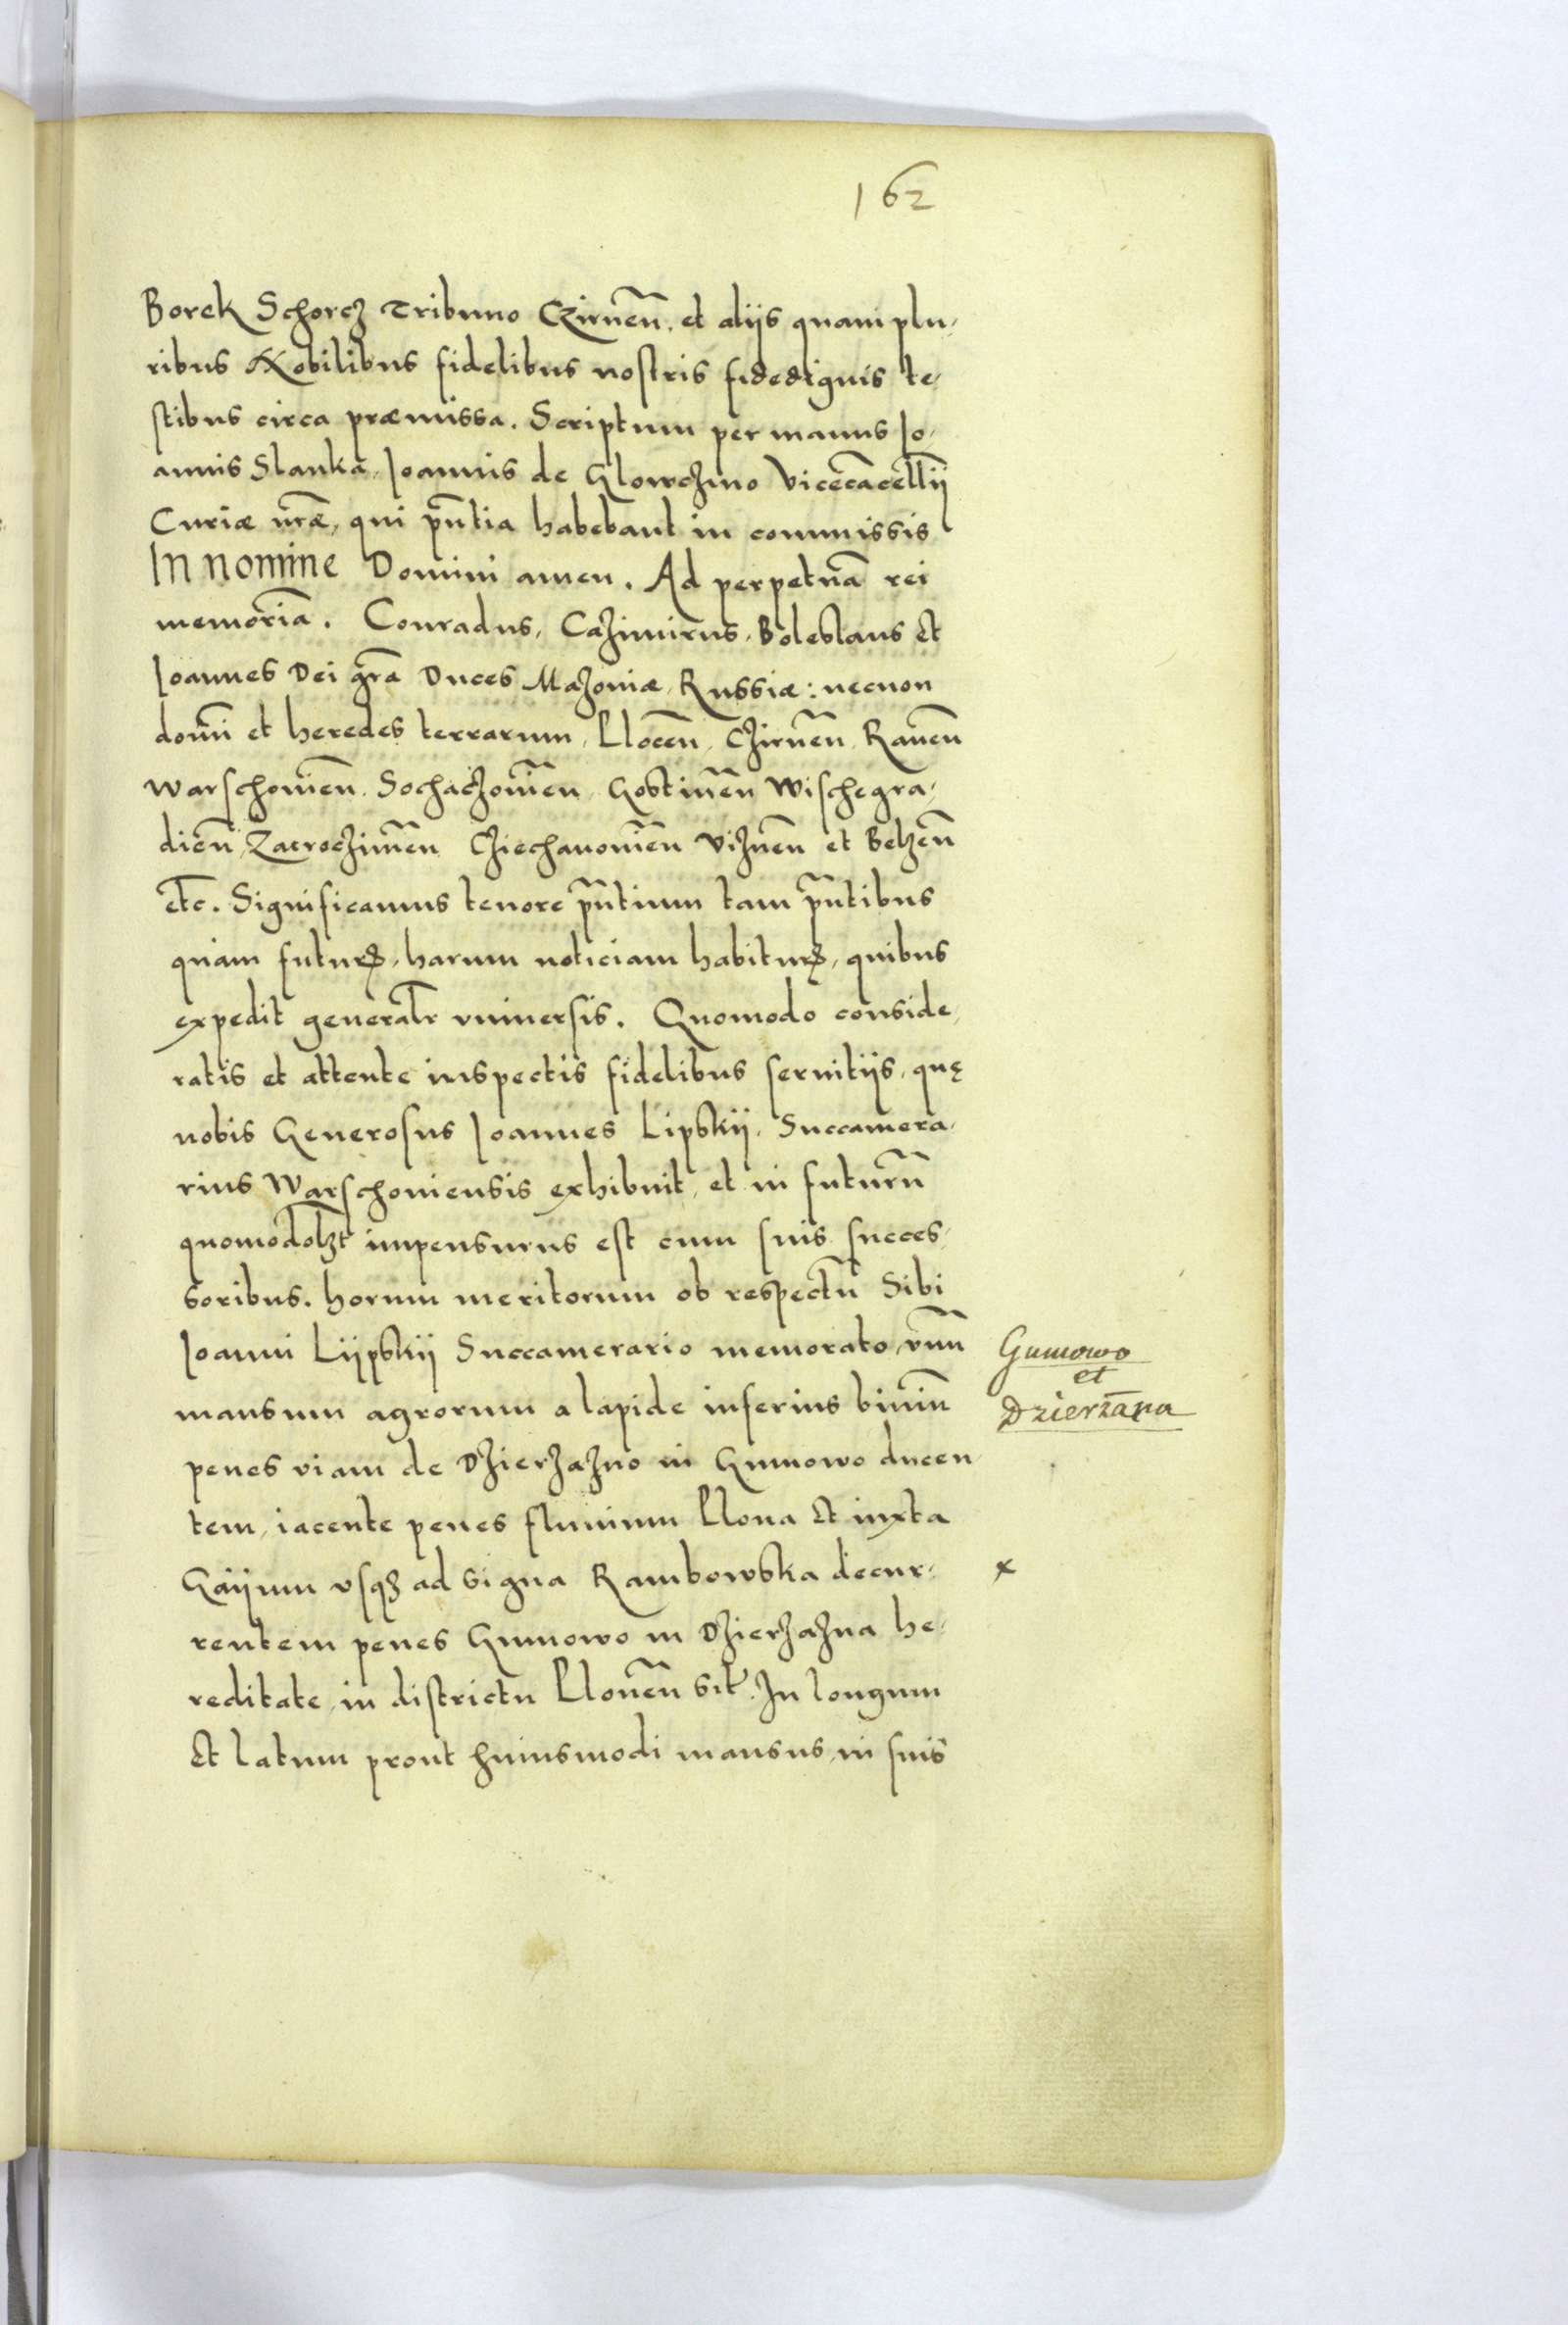 162
Borek Schorcz Tribuno Czirneñ. et alijs quam plu,
ribus Nobilibus fidelibus nostris fidedignis te,
stibus circa præmissa. Scriptum per manus Jo,
annis Slanka, Joannis de Glowczino Vicecãcellij
Curiæ nræ, qui pñtia habebant in commissis
In nomine Domini amen. Ad perpetuã rei
memoriã. Conradus, Cazimirus, Boleslaus et
Joannes Dei gra Duces Mazoviæ, Russiæ: necnon
domi et heredes terrarum, Plocen, Czirneñ, Raveñ
Warschovieñ. Sochaczovieñ, Gostineñ Wischegra,
dieñ, Zacroczimeñ Cziechanovieñ Vizneñ et Belzeñ
etc. Significamus tenore pñtium tam pñtibus
quam futurꝫ, harum noticiam habiturꝫ, quibus
expedit generalr universis. Quomodo conside,
ratis et attente inspectis fidelibus servitijs, quę
nobis Generosus Joannes Lipskij, Succamera,
rius Warschoviensis exhibuit, et in futurũ
quomodolꝫt impensurus est cum suis succes,
soribus. horum meritorum ob respectũ Sibi
Joanni Lijpskij Succamerario memorato, vnũ
mansum agrorum a lapide inferius biviũ
penes viam de Dzierzazno in Gumowo ducen
tem, iacente penes fluvium Plona et iuxta
Gaijum vsqꝫ ad signa Rambowska decur,
rentem penes Gumowo in Dzierzazna he,
reditate, in districtu Ploneñ sit. In longum
et latum prout huiusmodi mansus, in suis
Gumowo
et
Dzierzãna
x